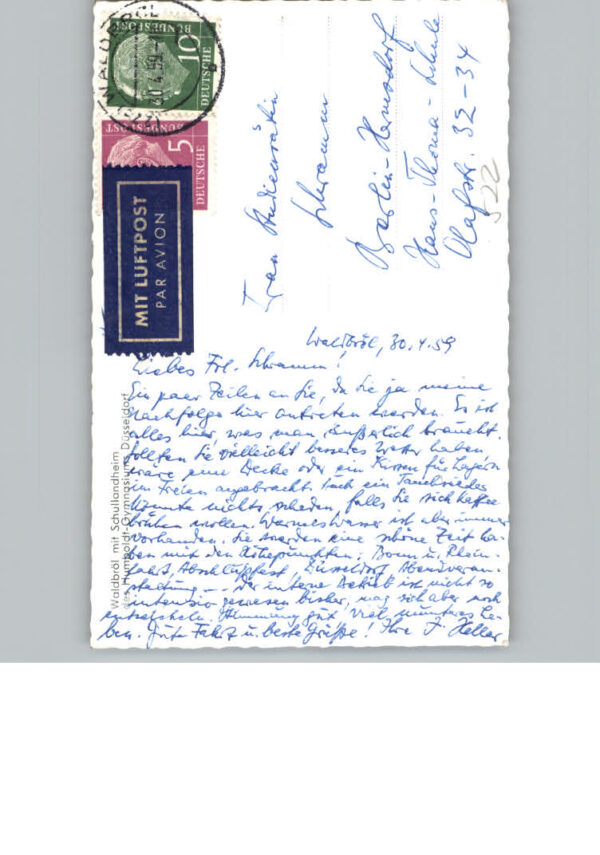 WALDBRÖL
10
DEUTSCHE
BUNDESPOST
5
DEUTSCHE
BUNDESPOST
MIT LUFTPOST
PAR AVION
Frau Studienrätin
Schramm
Berlin-Hermsdorf
Hans-Thoma-Schule
Olafstr. 32-34
522
Waldbröl, 30.4.59
Liebes Frl. Schramm!
Ein paar Zeilen an Sie, da Sie ja meine
Nachfolge hier antreten werden. Es ist
alles hier, was man äußerlich braucht.
Sollten Sie vielleicht besseres Wetter haben,
wäre eine Decke oder ein Kissen für Lagern
im Freien angebracht. Auch ein Tauchsieder
könnte nichts schaden, falls Sie sich Kaffee
brühen wollen. Warmes Wasser ist aber immer
vorhanden. Sie werden eine schöne Zeit ha-
ben mit den Höhepunkten: Bonn u. Rhein-
fahrt, Abschlußfest, Düsseldorf Abendveran-
staltung – Der interne Betrieb ist nicht so
intensiv gewesen bisher, mag sich aber noch
entwickeln. Stimmung gut, viel munteres Le-
ben. Gute Fahrt u. beste Grüße! Ihre J. Heller
Waldbröl mit Schullandheim
des Humboldt-Gymnasiums Düsseldorf